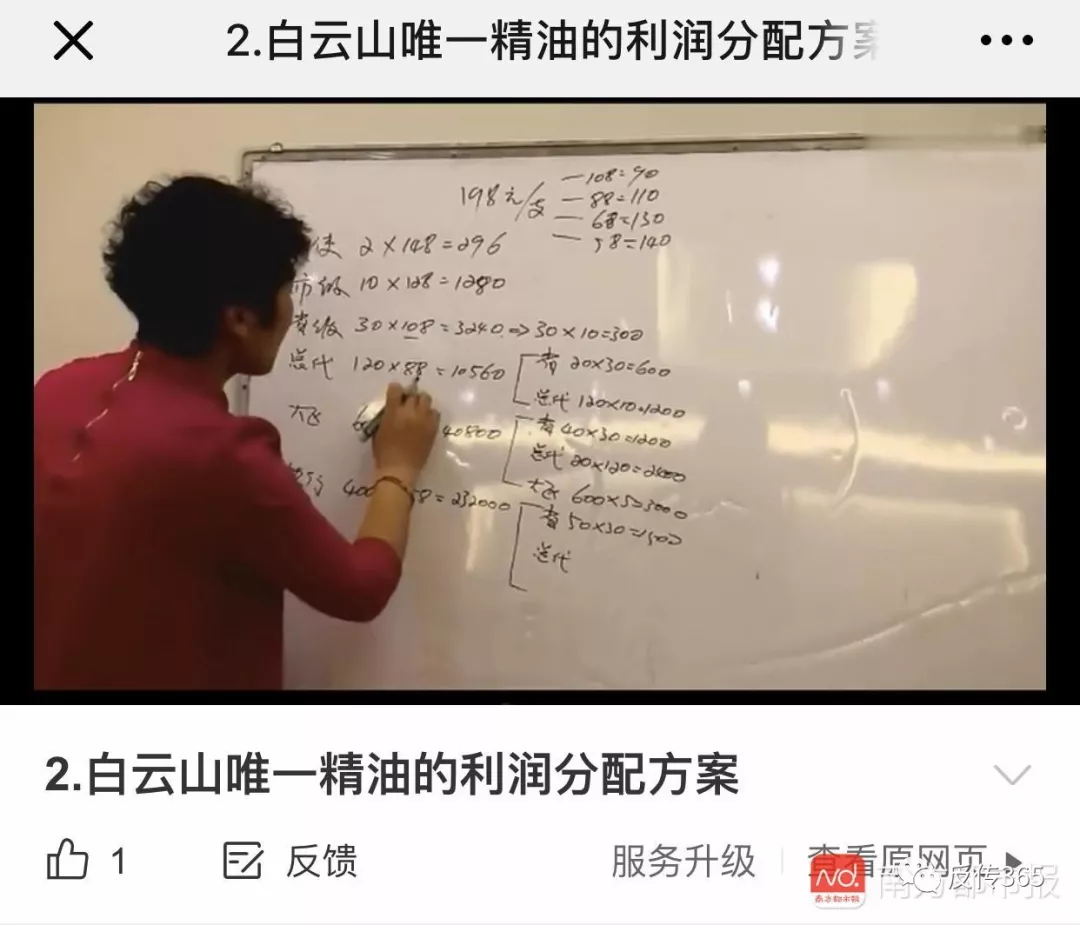 2.白云山唯一精油的利润分配方案
198元/支
—108=90
—88=110
—68=130
—58=140
使 2×148=296
市级 10×128=1280
省级 30×108=3240⇒30×10=300
总代 120×88=10560
省 20×30=600
总代 120×10=1200
大飞
40800
省 40×30=1200
总代 20×120=2400
大飞 600×5=3000
400 58=232000
省 50×30=1500
总代
2.白云山唯一精油的利润分配方案
1 反馈 服务升级 查看原网页
南方都市报
反传365